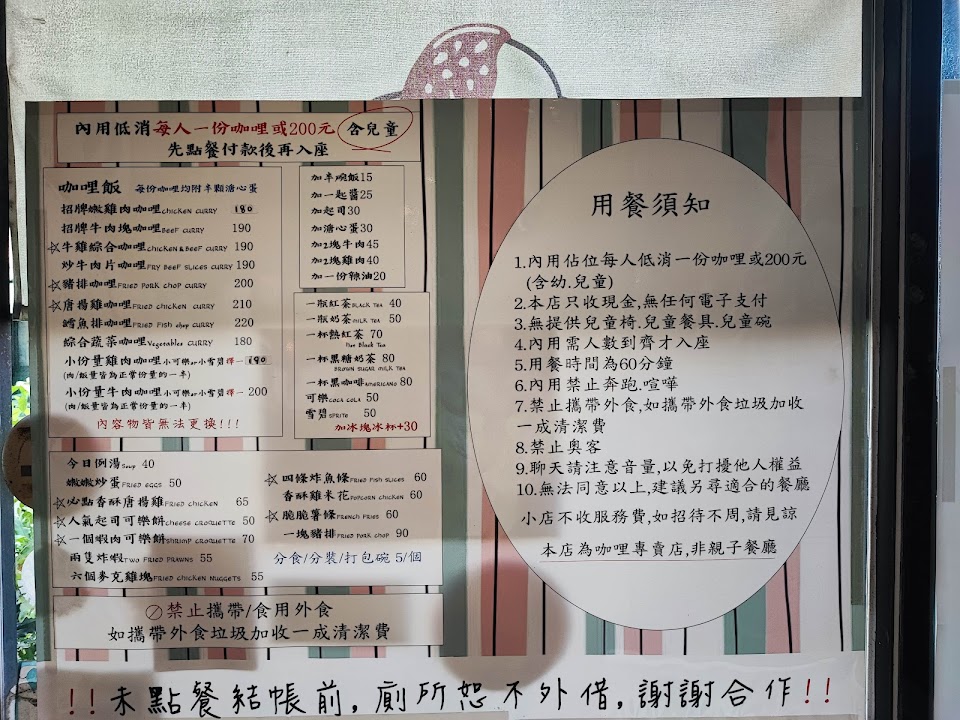 內用低消每人一份咖哩或200元 含兒童
先點餐付款後再入座
咖哩飯 每份咖哩均附半顆溏心蛋
招牌嫩雞肉咖哩CHICKEN CURRY 180
招牌牛肉塊咖哩BEEF CURRY 190
☆牛雞綜合咖哩CHICKEN&BEEF CURRY 190
炒牛肉片咖哩FRY BEEF SLICES CURRY 190
☆豬排咖哩FRIED PORK CHOP CURRY 200
☆唐揚雞咖哩FRIED CHICKEN CURRY 210
鱈魚排咖哩FRIED FISH CHOP CURRY 220
綜合蔬菜咖哩VEGETABLES CURRY 180
小份量雞肉咖哩小可樂or小雪碧擇一190
(肉/飯量皆為正常份量的一半)
小份量牛肉咖哩小可樂or小雪碧擇一200
(肉/飯量皆為正常份量的一半)
內容物皆無法更換!!!
加半碗飯15
加一匙醬25
加起司30
加溏心蛋30
加2塊牛肉45
加2塊雞肉40
加一份辣油20
一瓶紅茶BLACK TEA 40
一瓶奶茶MILK TEA 50
一杯熱紅茶 70
Hot Black Tea
一杯黑糖奶茶 80
BROWN SUGAR MILK TEA
一杯黑咖啡AMERICANO 80
可樂COCA COLA 50
雪碧SPRITE 50
加冰塊冰杯+30
今日例湯Soup 40
嫩嫩炒蛋FRIED EGGS 50
☆心點香酥唐揚雞FRIED CHICKEN 65
☆人氣起司可樂餅CHEESE CROQUETTE 50
☆一個蝦肉可樂餅SHRIMP CROQUETTE 70
兩隻炸蝦TWO FRIED PRAWNS 55
六個麥克雞塊FRIED CHICKEN NUGGETS 55
☆四條炸魚條FRIED FISH SLICES 60
香酥雞米花POPCORN CHICKEN 60
☆脆脆薯條FRENCH FRIES 60
一塊豬排FRIED PORK CHOP 90
分食/分裝/打包碗 5/個
禁止攜帶/食用外食
如攜帶外食垃圾加收一成清潔費
用餐須知
1.內用佔位每人低消一份咖哩或200元
(含幼.兒童)
2.本店只收現金,無任何電子支付
3.無提供兒童椅.兒童餐具.兒童碗
4.內用需人數到齊才入座
5.用餐時間為60分鐘
6.內用禁止奔跑.喧嘩
7.禁止攜帶外食,如攜帶外食垃圾加收
一成清潔費
8.禁止奧客
9.聊天請注意音量,以免打擾他人權益
10.無法同意以上,建議另尋適合的餐廳
小店不收服務費,如招待不周,請見諒
本店為咖哩專賣店,非親子餐廳
!!未點餐結帳前,廁所恕不外借,謝謝合作!!